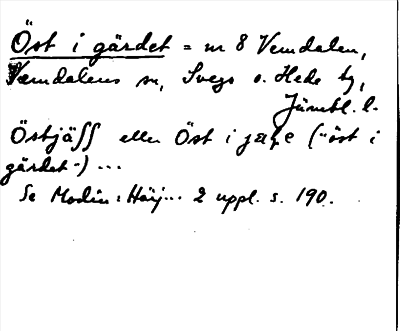 Öst i gärdet = nr 8 Vemdalen,
Vemdalens sn, Svegs o. Hede tg,
Jämtl. l.
Östjäſſ eller Öst i jæʃe ("öst i
gärdet") ...
Se Modin: Härj... 2 uppl. s. 190.